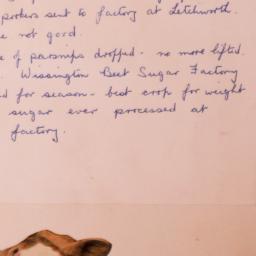 porkers sent to factory at Letchworth.
not good.
of parsnips dropped - no more lifted.
Wissington Beet Sugar Factory
for season - best crop for weight
sugar ever processed at
factory.